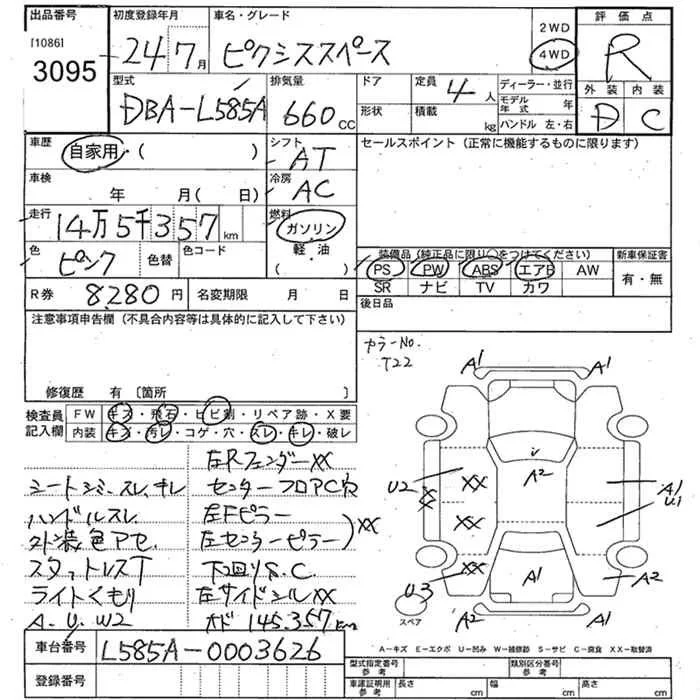 出品番号
[1086]
3095
初度登録年月
24 7月
車名・グレード
ピクシススペース
2WD
4WD
評価点
R
外装 内装
D C
型式
DBA-L585A
排気量
660 CC
ドア
形状
定員 4人
積載 kg
ディーラー・並行
モデル年式 年
ハンドル 左・右
車歴
自家用 ( )
シフト
AT
車検
年 月( 日)
冷房
AC
走行
14万5千357 km
燃料
ガソリン
軽・油
( )
色
ピンク
色替
色コード
R券 8280円
名変期限 月 日
セールスポイント (正常に機能するものに限ります)
装備品 (純正品に限り○をつけてください)
新車保証書
PS PW ABS エアB AW
SR ナビ TV カワ
有・無
後日品
注意事項申告欄 (不具合内容等は具体的に記入して下さい)
修復歴 有 〔箇所 〕
検査員記入欄
FW キズ・飛石・ヒビ割・リペア跡・X要
内装 キズ・汚レ・コゲ・穴・スレ・キレ・破レ
シートシミ、スレ、キレ
ハンドルスレ
外装色アセ
スタットレスT
ライトくもり
A.U.W2
左Rフェンダー XX
センターフロアC穴
左Fピラー
左センターピラー
XX
下回りS.C.
左サイドシルXX
オド 145.357km
カラーNo.
T22
A1
A1
A2
U2
XX
XX
XX
XX
A1
U1
U3
A2
A1
A2
A1
スペア
A-キズ E-エクボ U-凹み W-補修跡 S-サビ C-腐食 XX-取替済
車台番号 L585A-0003626
登録番号
型式指定番号 参考
類別区分番号 参考
車庫証明用 参考
長さ cm
幅 cm
高さ cm